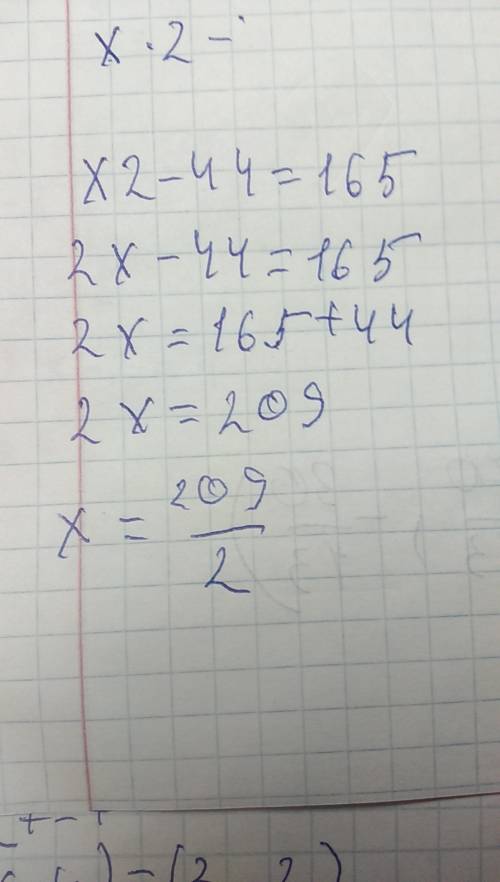 x · 2 -
x2 - 44 = 165
2x - 44 = 165
2x = 165 + 44
2x = 209
x = 209/2